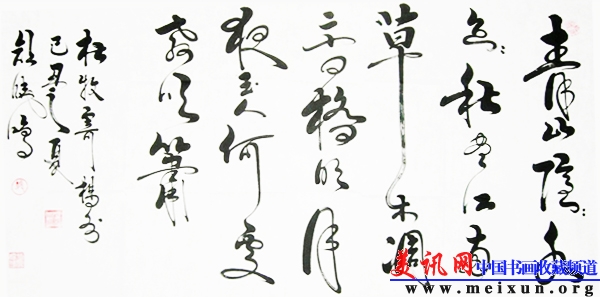 青山隱:水
迢:秋尽江南
草木凋
二十四橋明月
夜玉人何處
教吹簫
杜牧寄揚州
己丑之夏
美讯网 中国书画收藏频道
www.meixun.org